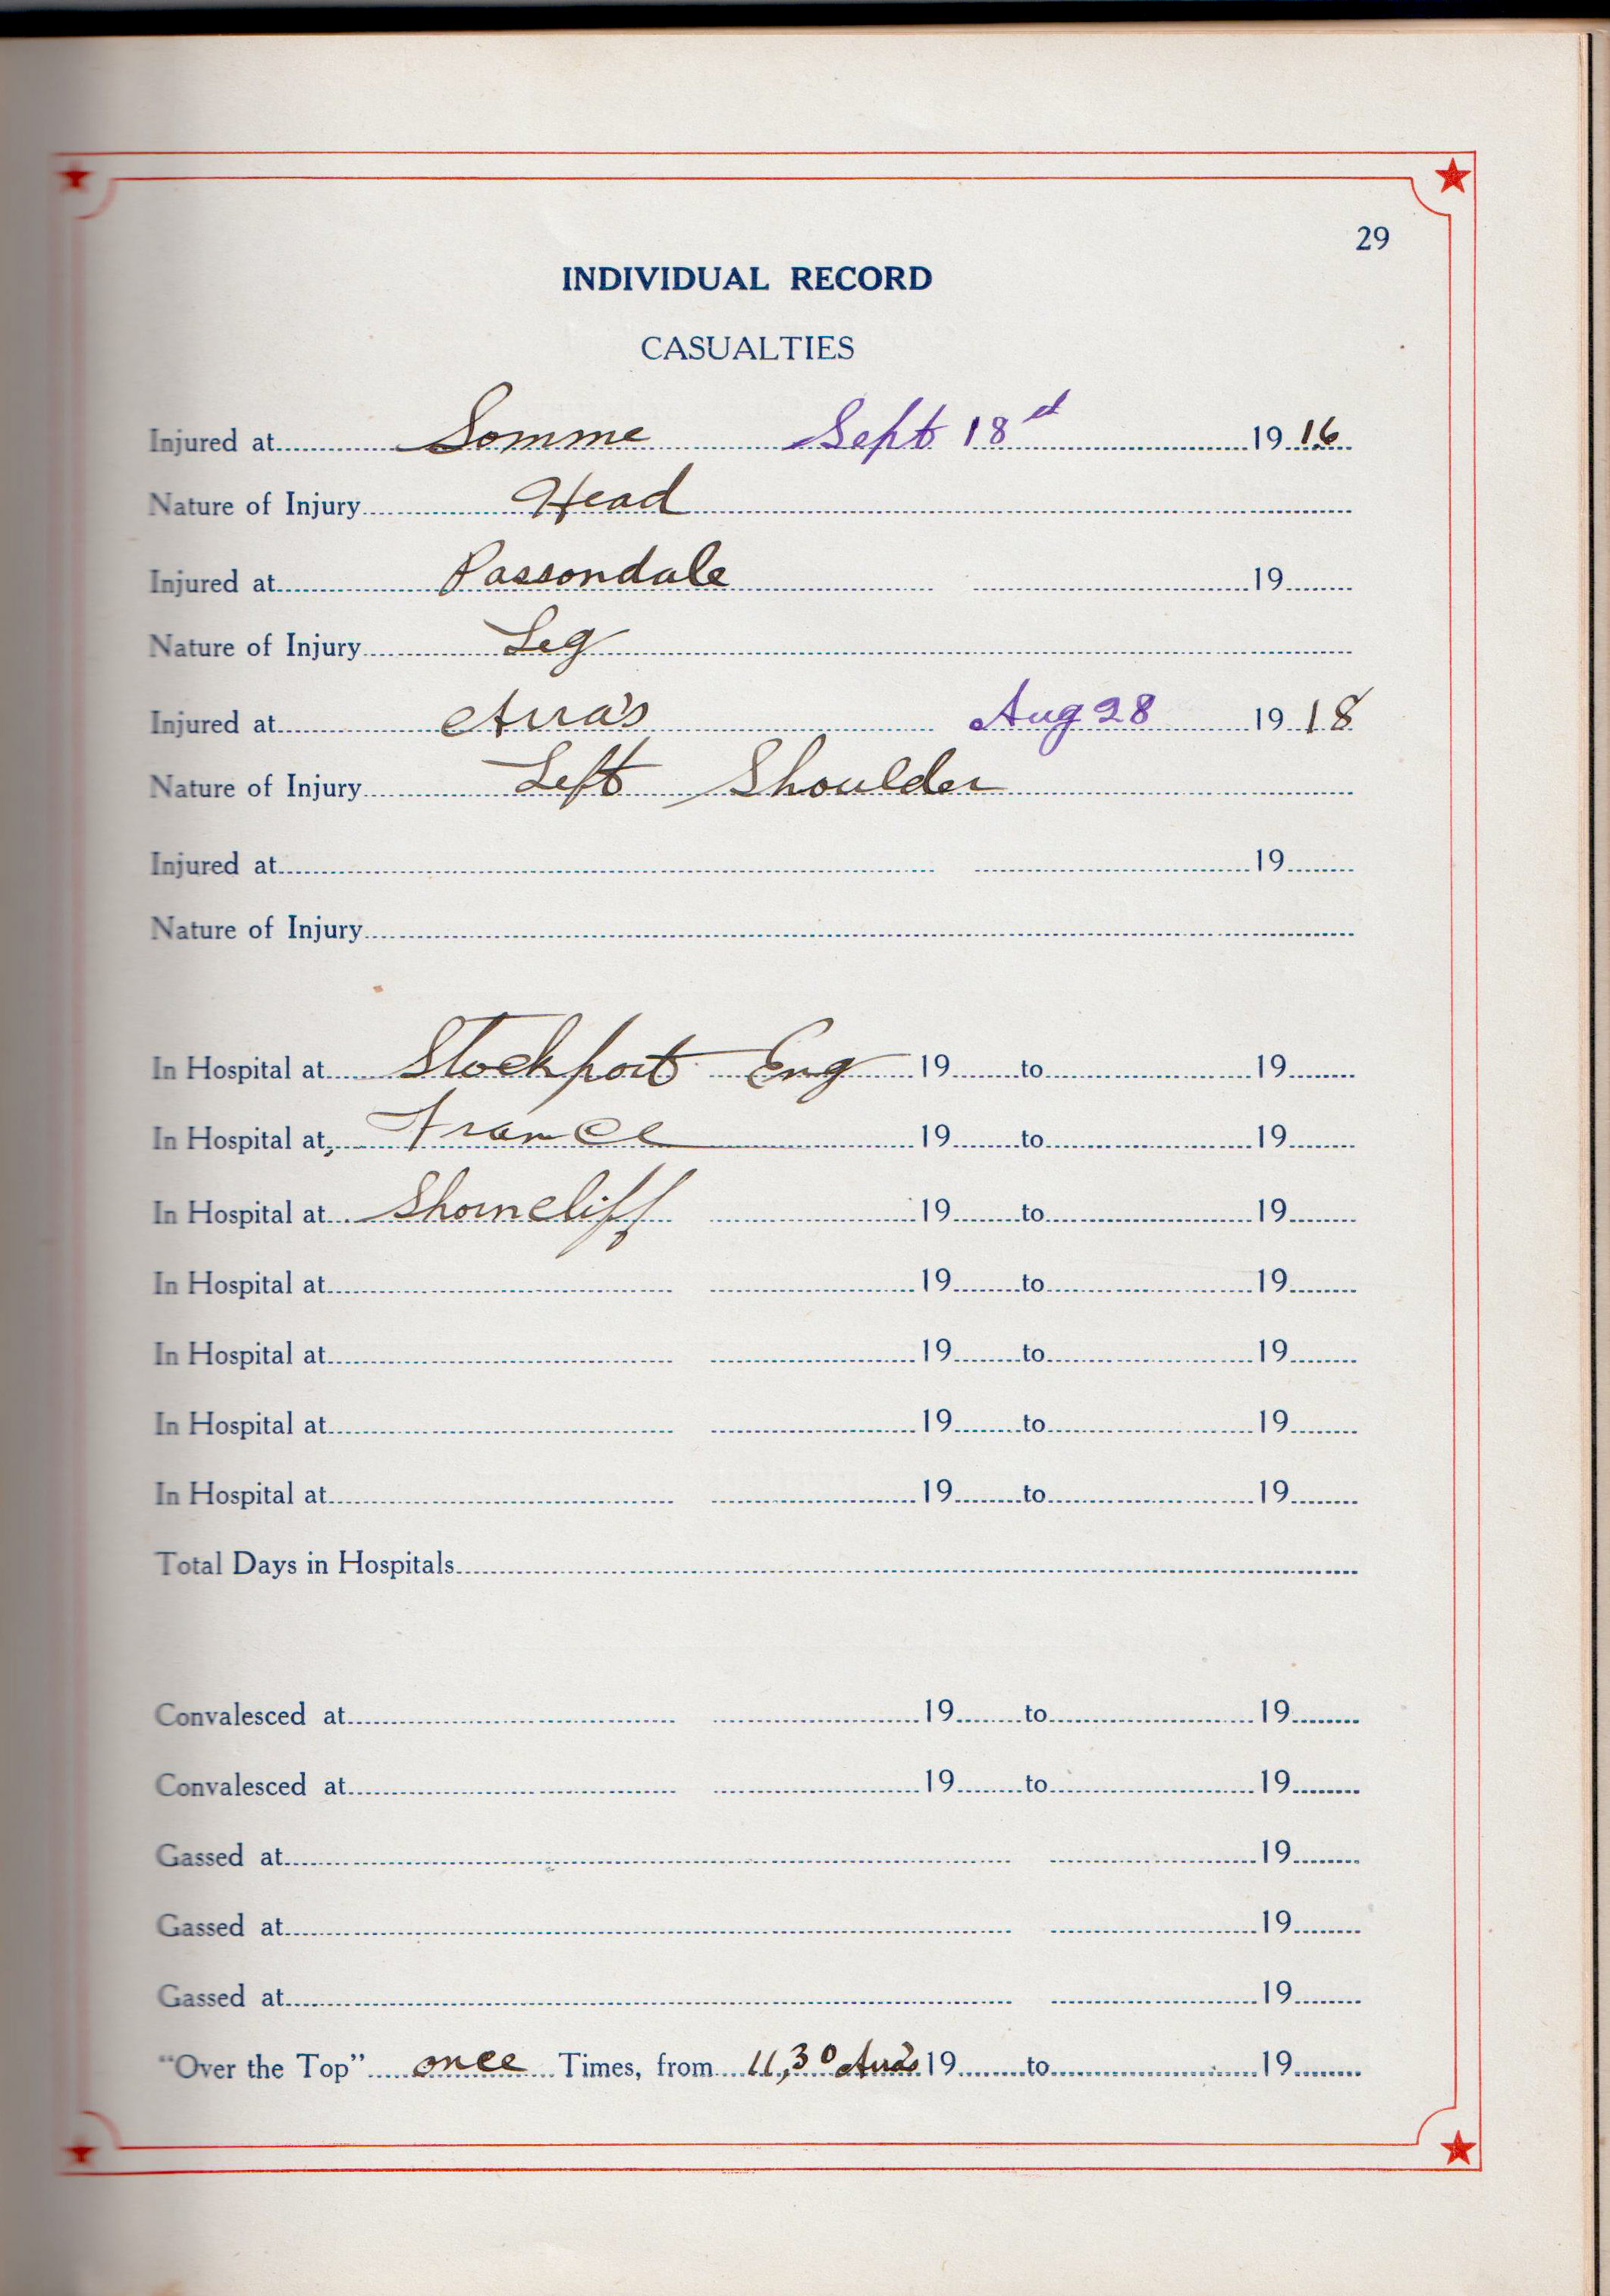 29
INDIVIDUAL RECORD
CASUALTIES
Injured at Somme Sept 18 1916
Nature of Injury Head
Injured at Passondale 19
Nature of Injury Leg
Injured at Arra's Aug 28 1918
Nature of Injury Left Shoulder
Injured at 19
Nature of Injury
In Hospital at Stockport Eng 19 to 19
In Hospital at France 19 to 19
In Hospital at Shorncliff 19 to 19
In Hospital at 19 to 19
In Hospital at 19 to 19
In Hospital at 19 to 19
In Hospital at 19 to 19
Total Days in Hospitals
Convalesced at 19 to 19
Convalesced at 19 to 19
Gassed at 19
Gassed at 19
Gassed at 19
"Over the Top" once Times, from 11,30 Arras 19 to 19